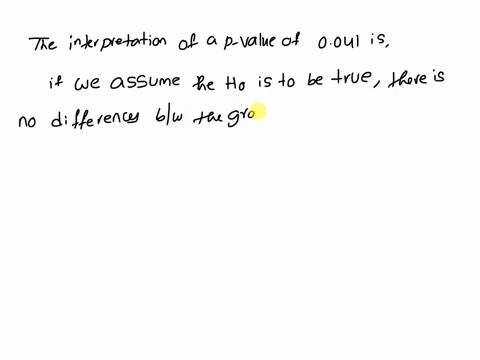 The interpretation of a p-value of 0.041 is,
if we assume the Ho is to be true, there is
no differences b/w the gro